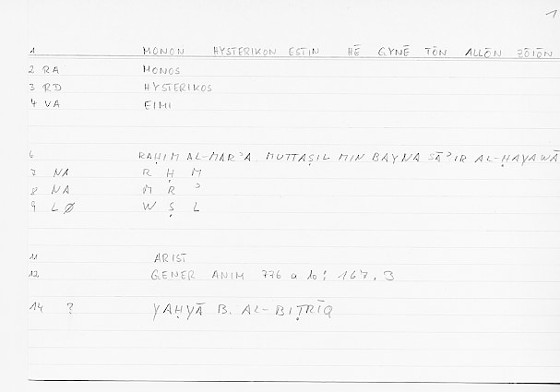 1
1 MONON HYSTERIKON ESTIN HĒ GYNĒ TŌN ALLŌN ZŌIŌN
2 RA MONOS
3 RD HYSTERIKOS
4 VA EIMI
6 RAḤIM AL-MARʾA MUTTAṢIL MIN BAYNA SĀʾIR AL-ḤAYAWĀ
7 NA R Ḥ M
8 NA M R ʾ
9 LØ W Ṣ L
11 ARIST
12 GENER ANIM 776 a 10: 167.3
14 ? YAḤYĀ B. AL-BIṬRĪQ